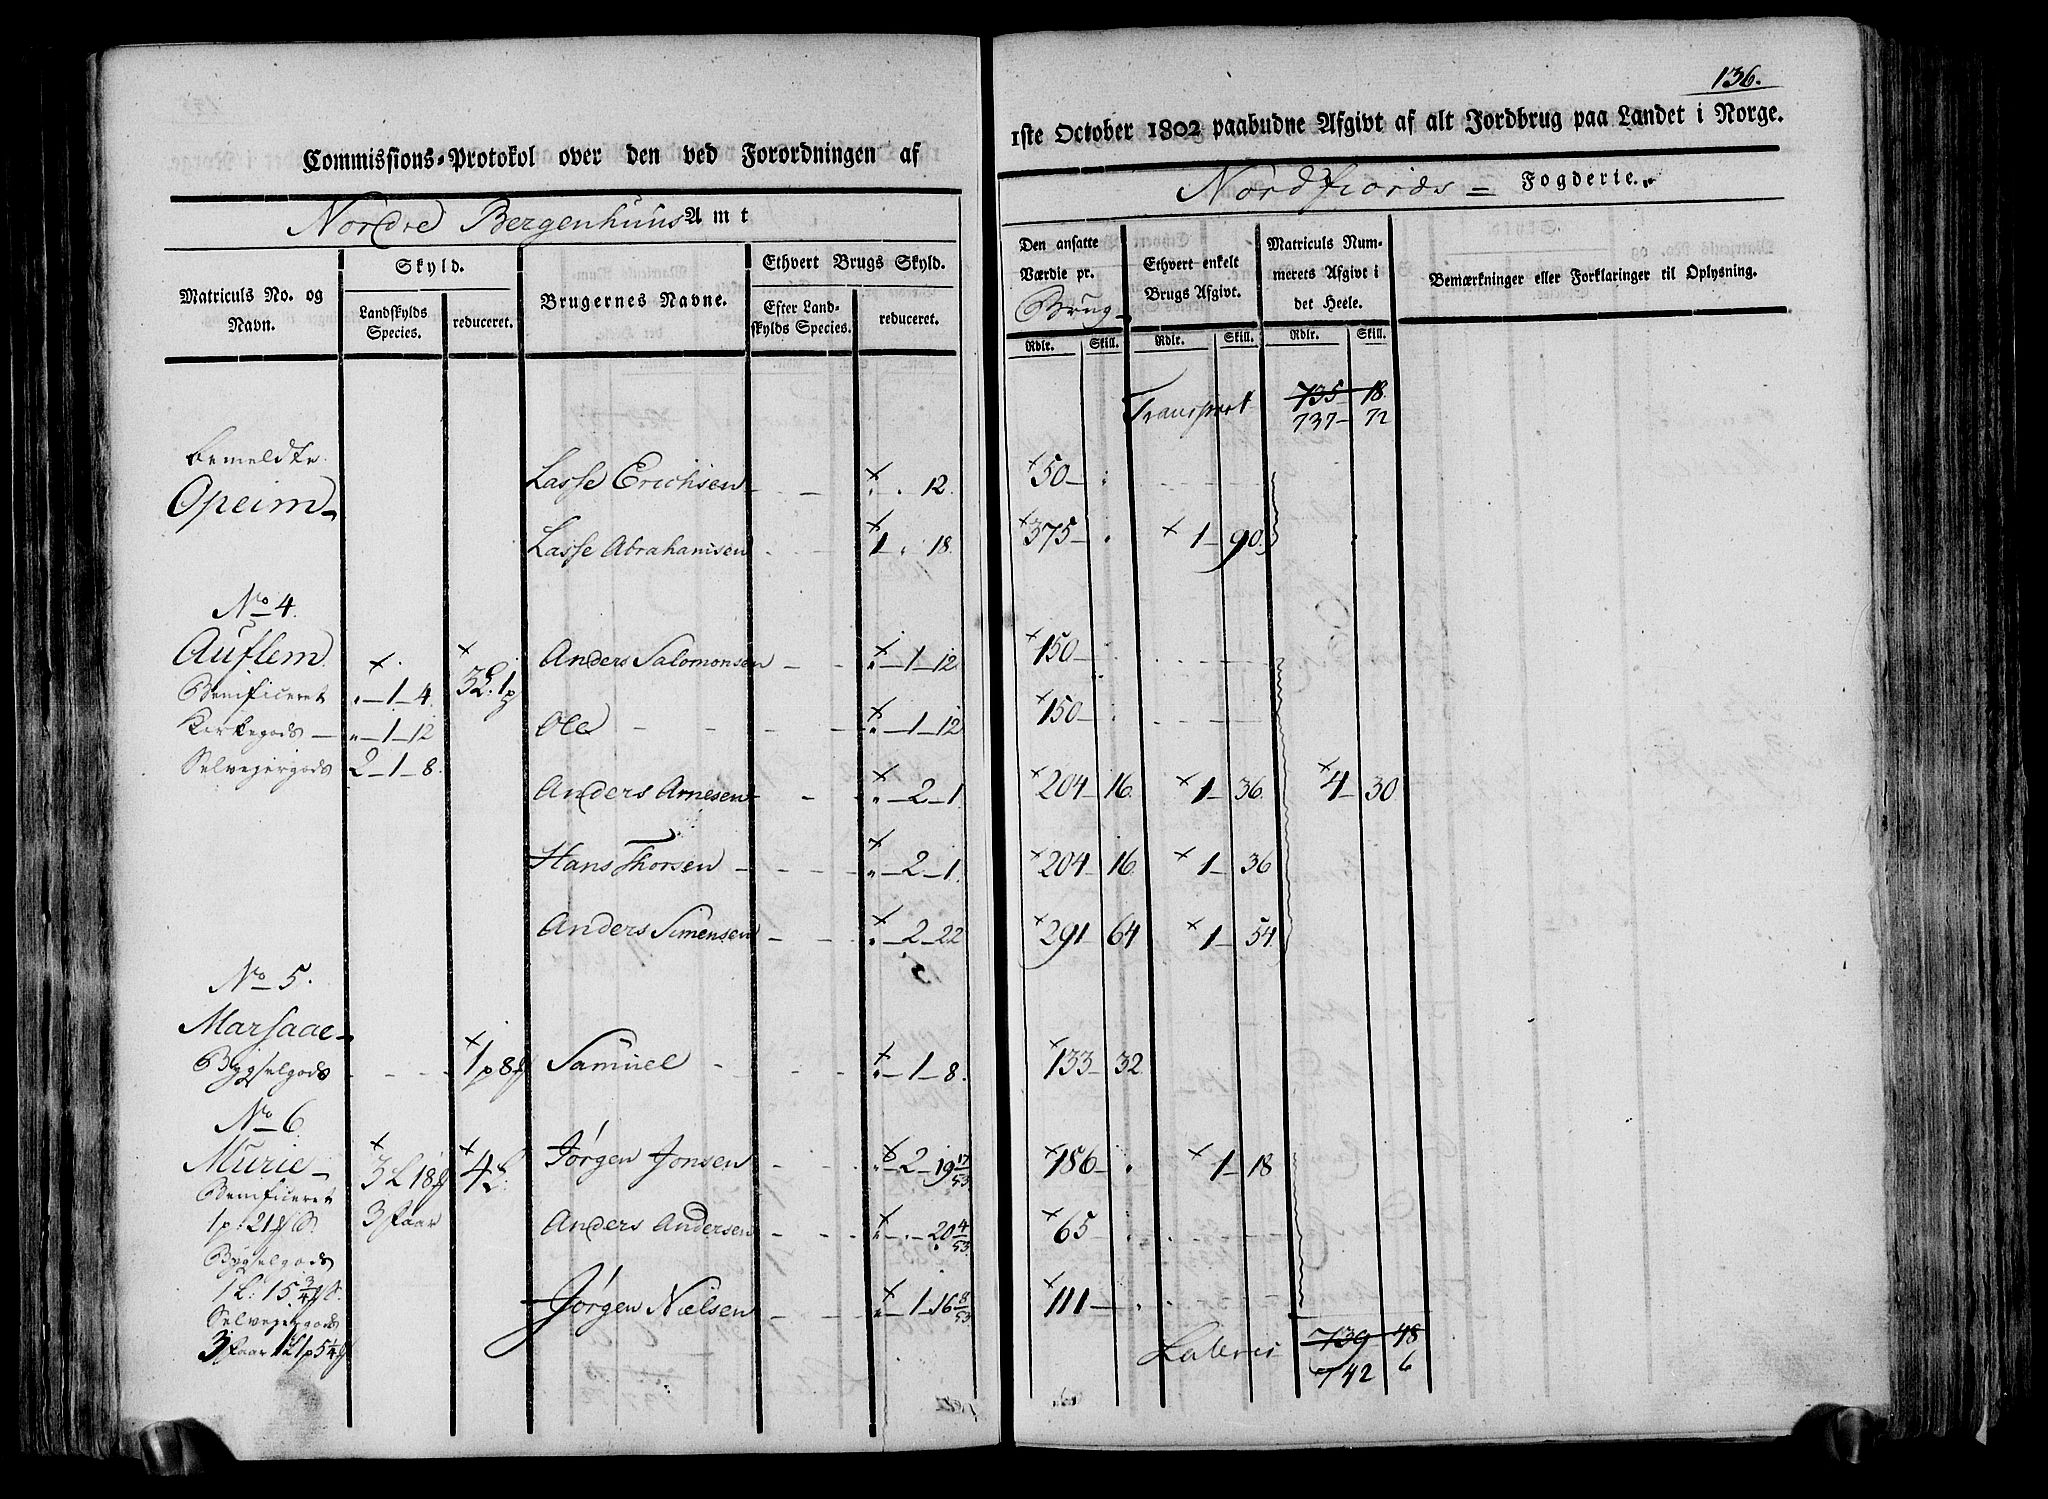 136.
Commissions-Protokol over den ved Forordningen af
1ste October 1802 paabudne Afgivt af alt Jordbrug paa Landet i Norge.
Nordre Bergenhuus Amt
Nordfiords = Fogderie.
Matriculs No. og Navn.
Skyld.
Landskylds Species.
reduceret.
Brugernes Navne.
Ethvert Brugs Skyld.
Efter Landskylds Species.
reduceret.
Den ansatte Værdie pr. Brug
Ethvert enkelt Brugs Afgivt.
Matriculs Nummerets Afgivt i det Heele.
Bemærkninger eller Forklaringer til Oplysning.
Rdlr. Skill. Rdlr. Skill. Rdlr. Skill.
Transport 735 - 18
737 - 72
bemeldte
Opeim
Lasse Erichsen - - - × " . 12. ×50 -
Lasse Abrahamsen - - × 1 . 18. ×375 - × 1 - 90.
No 4.
Auflem
Anders Salomonsen - - × " - 1 - 12 ×150 -
Benificeret × " - 1 - 4. × 3L. 1p
Kirkegods - " - 1 - 12
Ole - - - - × " - 1 - 12 ×150 -
Selvejergods 2 - 1 - 8.
Anders Arnesen - - × " - 2 - 1 ×204 - 16. × 1 - 36. × 4 - 30
Hans Thorsen - - - × " - 2 - 1. ×204 - 16. × 1 - 36
Anders Simensen - - × " - 2 - 22 ×291 - 64 × 1 - 54.
No 5.
Marsaae
Bygselgods - - - × 1p 8 Samuel - - - × " - 1 - 8. ×133 - 32
No 6.
Murie
× 3L 18 × 4L. Jørgen Jonsen - - × " - 2 - 19 17/53 ×186 - × 1 - 18
Benificeret
1p: 21 3 Faar
Anders Andersen - - × " - . - 20 4/53 ×65 -
Bygselgods
1L: 15 3/4
Jørgen Nielsen - - × " - 1 - 16 8/53 ×111 -
Selvejergods
3 Faar 1L 1p 5 1/4
Lateris 739 - 48
742 6